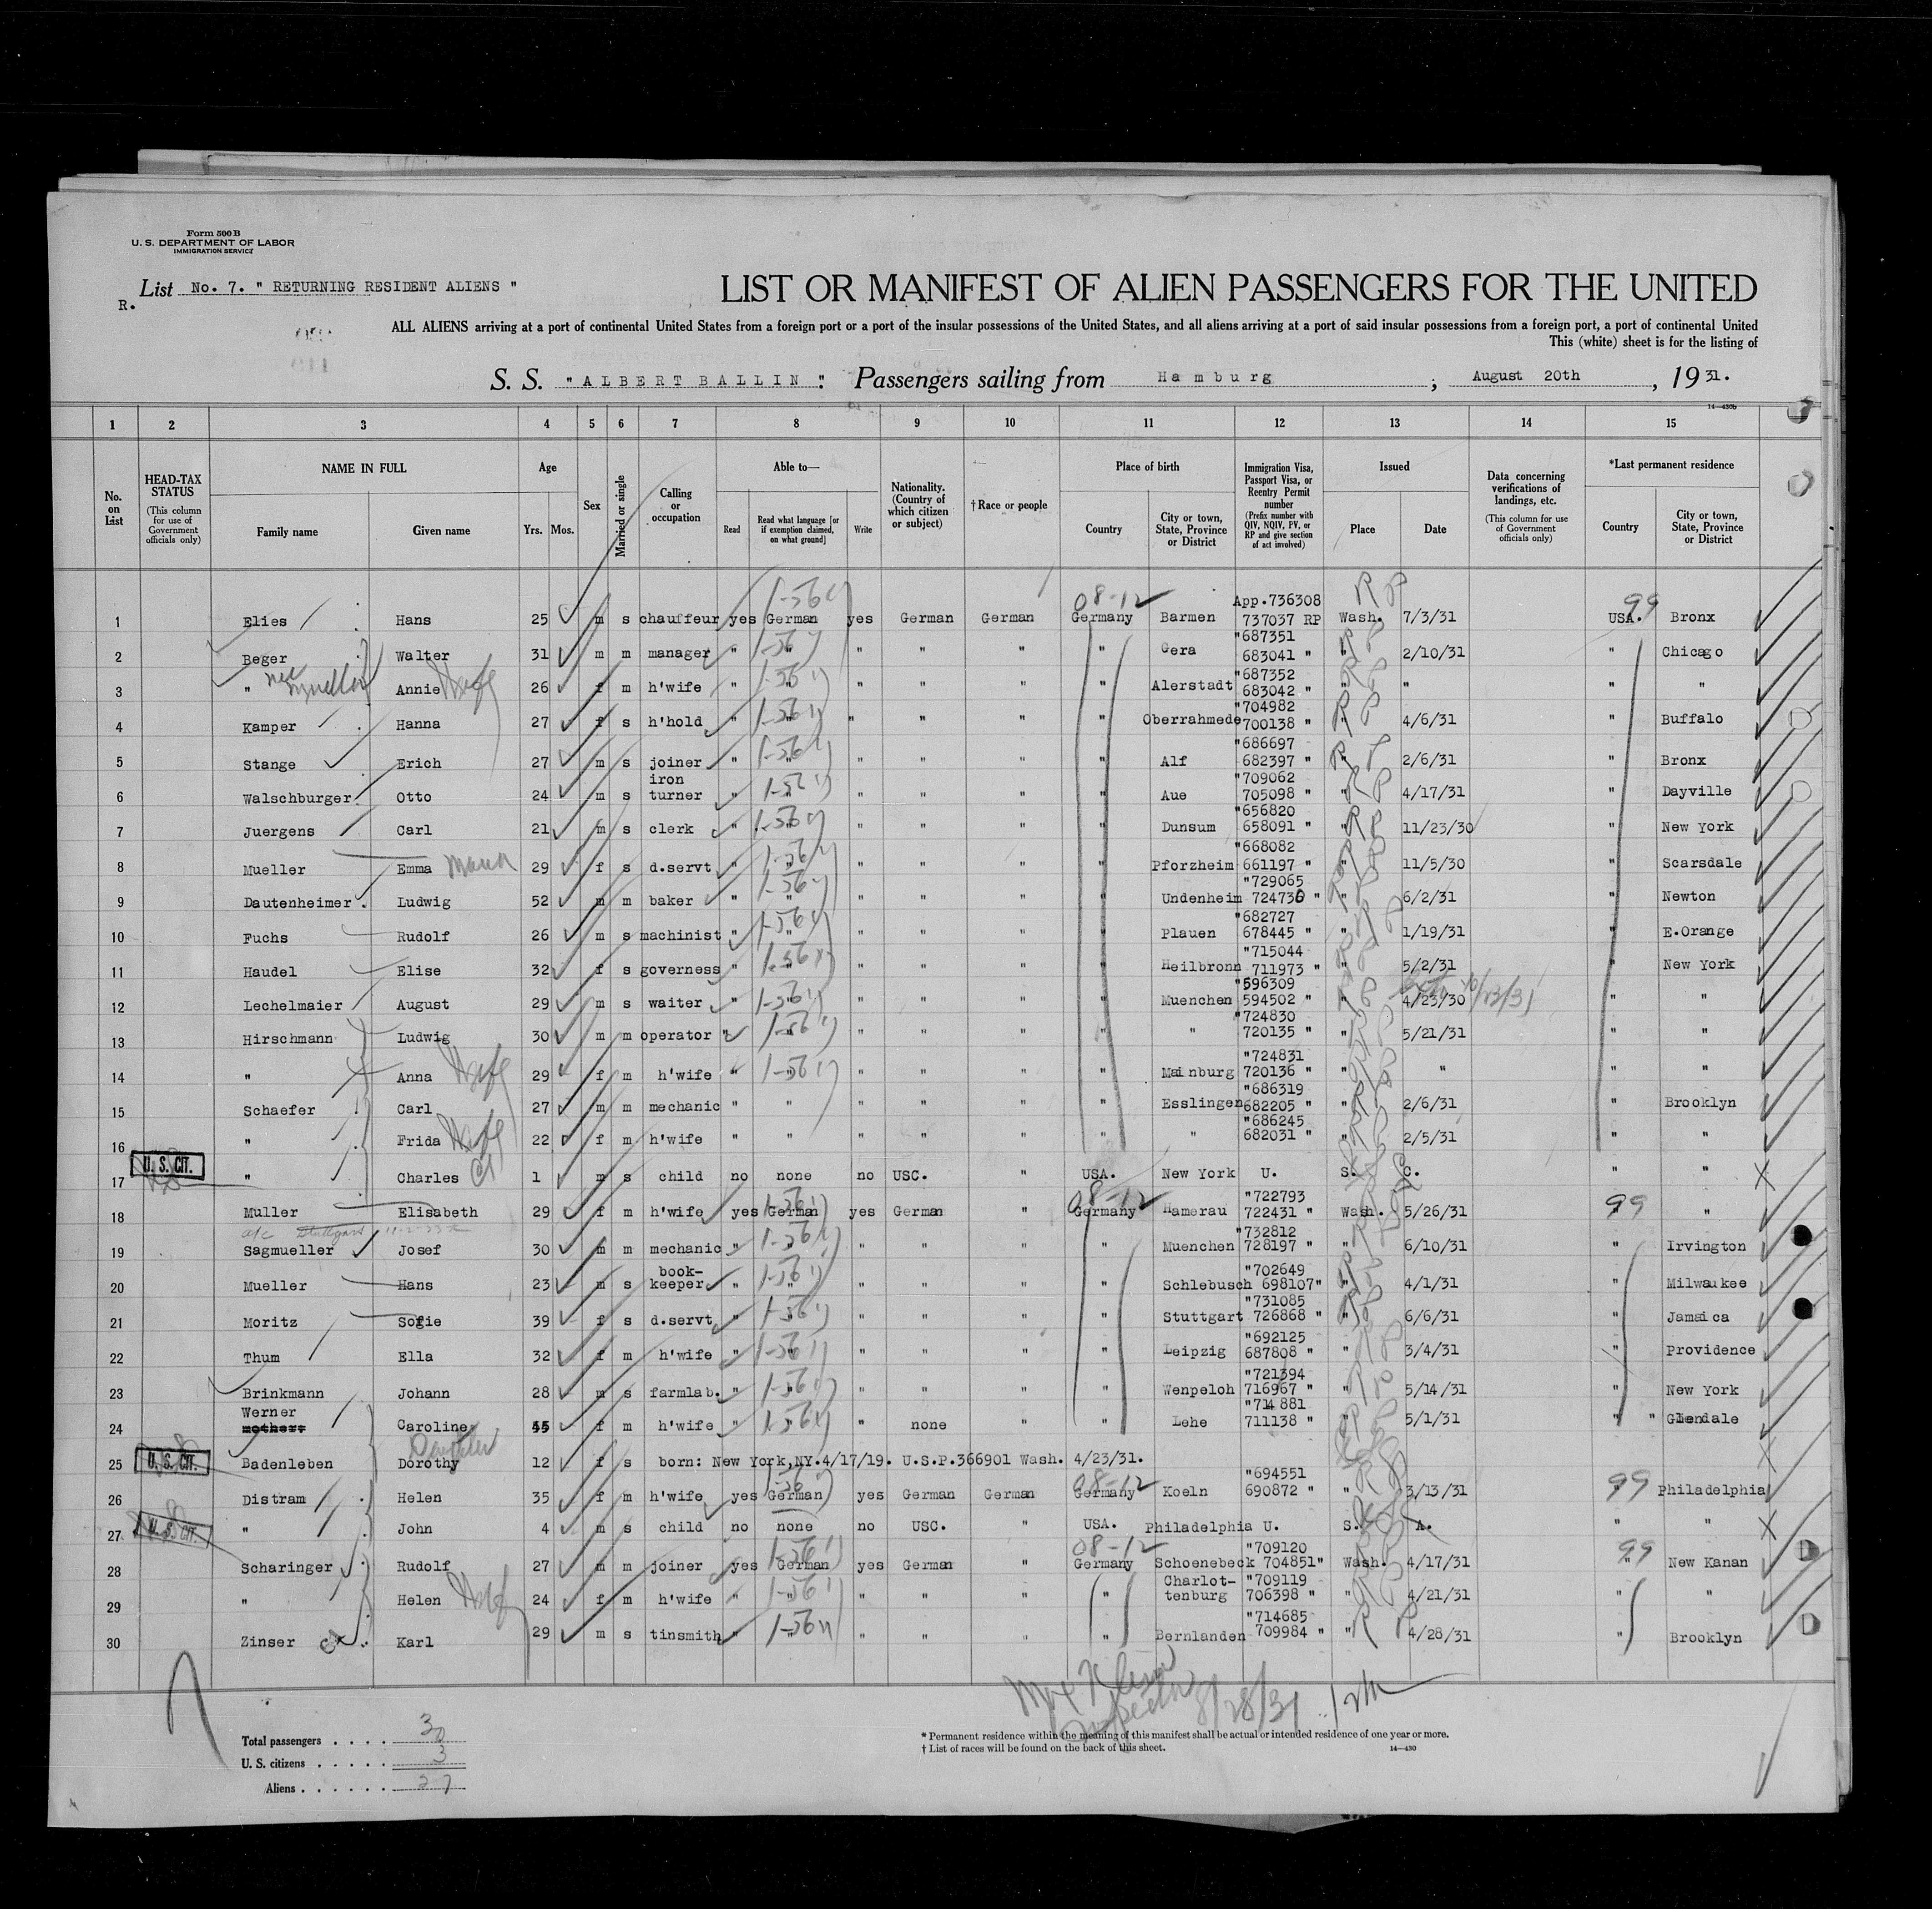 Form 500 B
U. S. DEPARTMENT OF LABOR
IMMIGRATION SERVICE
List No. 7. " RETURNING RESIDENT ALIENS "
R.
LIST OR MANIFEST OF ALIEN PASSENGERS FOR THE UNITED
ALL ALIENS arriving at a port of continental United States from a foreign port or a port of the insular possessions of the United States, and all aliens arriving at a port of said insular possessions from a foreign port, a port of continental United
This (white) sheet is for the listing of
S. S. "ALBERT BALLIN". Passengers sailing from Hamburg ; August 20th , 19 31.
14—430b
1 2 3 4 5 6 7 8 9 10 11 12 13 14 15
No. on List
HEAD-TAX STATUS (This column for use of Government officials only)
NAME IN FULL Family name Given name
Age Yrs. Mos.
Sex
Married or single
Calling or occupation
Able to— Read Read what language [or if exemption claimed, on what ground] Write
Nationality. (Country of which citizen or subject)
†Race or people
Place of birth Country City or town, State, Province or District
Immigration Visa, Passport Visa, or Reentry Permit number (Prefix number with QIV, NQIV, PV, or RP and give section of act involved)
Issued Place Date
Data concerning verifications of landings, etc. (This column for use of Government officials only)
*Last permanent residence Country City or town, State, Province or District
1 Elies Hans 25 m s chauffeur yes German yes German German Germany Barmen App.736308 737037 RP Wash. 7/3/31 USA. Bronx
2 Beger Walter 31 m m manager " " " " " " Gera "687351 683041 " " 2/10/31 " Chicago
3 " nee Mueller Annie Wife 26 f m h'wife " " " " " " Alerstadt "687352 683042 " " " " "
4 Kamper Hanna 27 f s h'hold " " " " " " Oberrahmede "704982 700138 " " 4/6/31 " Buffalo
5 Stange Erich 27 m s joiner " " " " " " Alf "686697 682397 " " 2/6/31 " Bronx
6 Walschburger Otto 24 m s iron turner " " " " " " Aue "709062 705098 " " 4/17/31 " Dayville
7 Juergens Carl 21 m s clerk " " " " " " Dunsum "656820 658091 " " 11/23/30 " New York
8 Mueller Emma Maria 29 f s d.servt. " " " " " " Pforzheim "668082 661197 " " 11/5/30 " Scarsdale
9 Dautenheimer Ludwig 52 m m baker " " " " " " Undenheim "729065 724736 " " 6/2/31 " Newton
10 Fuchs Rudolf 26 m s machinist " " " " " " Plauen "682727 678445 " " 1/19/31 " E.Orange
11 Haudel Elise 32 f s governess " " " " " " Heilbronn "715044 711973 " " 5/2/31 " New York
12 Lechelmaier August 29 m s waiter " " " " " " Muenchen "596309 594502 " " 4/23/30 10/23/31 " "
13 Hirschmann Ludwig 30 m m operator " " " " " " " "724830 720135 " " 5/21/31 " "
14 " Anna Wife 29 f m h'wife " " " " " " Mainburg "724831 720136 " " " " "
15 Schaefer Carl 27 m m mechanic " " " " " " Esslingen "686319 682205 " " 2/6/31 " Brooklyn
16 " Frida Wife 22 f m h'wife " " " " " " " "686245 682031 " " 2/5/31 " "
U. S. CIT.
17 " Charles 1 m s child no none no USC. " USA. New York U. S. C. " "
18 Muller Elisabeth 29 f m h'wife yes German yes German " Germany Hamerau "722793 722431 " Wash. 5/26/31 " "
19 Sagmueller Josef 30 m m mechanic " " " " " " Muenchen "732812 728197 " " 6/10/31 " Irvington
20 Mueller Hans 23 m s book-keeper " " " " " " Schlebusch "702649 698107" " 4/1/31 " Milwaukee
21 Moritz Sofie 39 f s d.servt. " " " " " " Stuttgart "731085 726868 " " 6/6/31 " Jamaica
22 Thum Ella 32 f m h'wife " " " " " " Leipzig "692125 687808 " " 3/4/31 " Providence
23 Brinkmann Johann 28 m s farmlab. " " " " " " Wenpeloh "721394 716967 " " 5/14/31 " New York
24 Werner Caroline f m h'wife " " " none " " Lehe "714881 711138 " " 5/1/31 " " Glendale
U. S. CIT.
25 Badenleben Dorothy Daughter 12 f s born: New York,NY.4/17/19. U.S.P.366901 Wash. 4/23/31.
26 Distram Helen 35 f m h'wife yes German yes German German Germany Koeln "694551 690872 " " 3/13/31 " Philadelphia
U. S. CIT.
27 " John 4 m s child no none no USC. " USA. Philadelphia U. S. A. " "
28 Scharinger Rudolf 27 m m joiner yes German yes German " Germany Schoenebeck "709120 704851" Wash. 4/17/31 " New Kanan
29 " Helen Wife 24 f m h'wife " " " " " " Charlot-tenburg "709119 706398 " " 4/21/31 " "
30 Zinser Karl 29 m s tinsmith " " " " " " Bernlanden "714685 709984 " " 4/28/31 " Brooklyn
8/28/31
Total passengers . . . . 30
U. S. citizens . . . . . 3
Aliens . . . . . . 27
* Permanent residence within the meaning of this manifest shall be actual or intended residence of one year or more.
† List of races will be found on the back of this sheet.
14—430